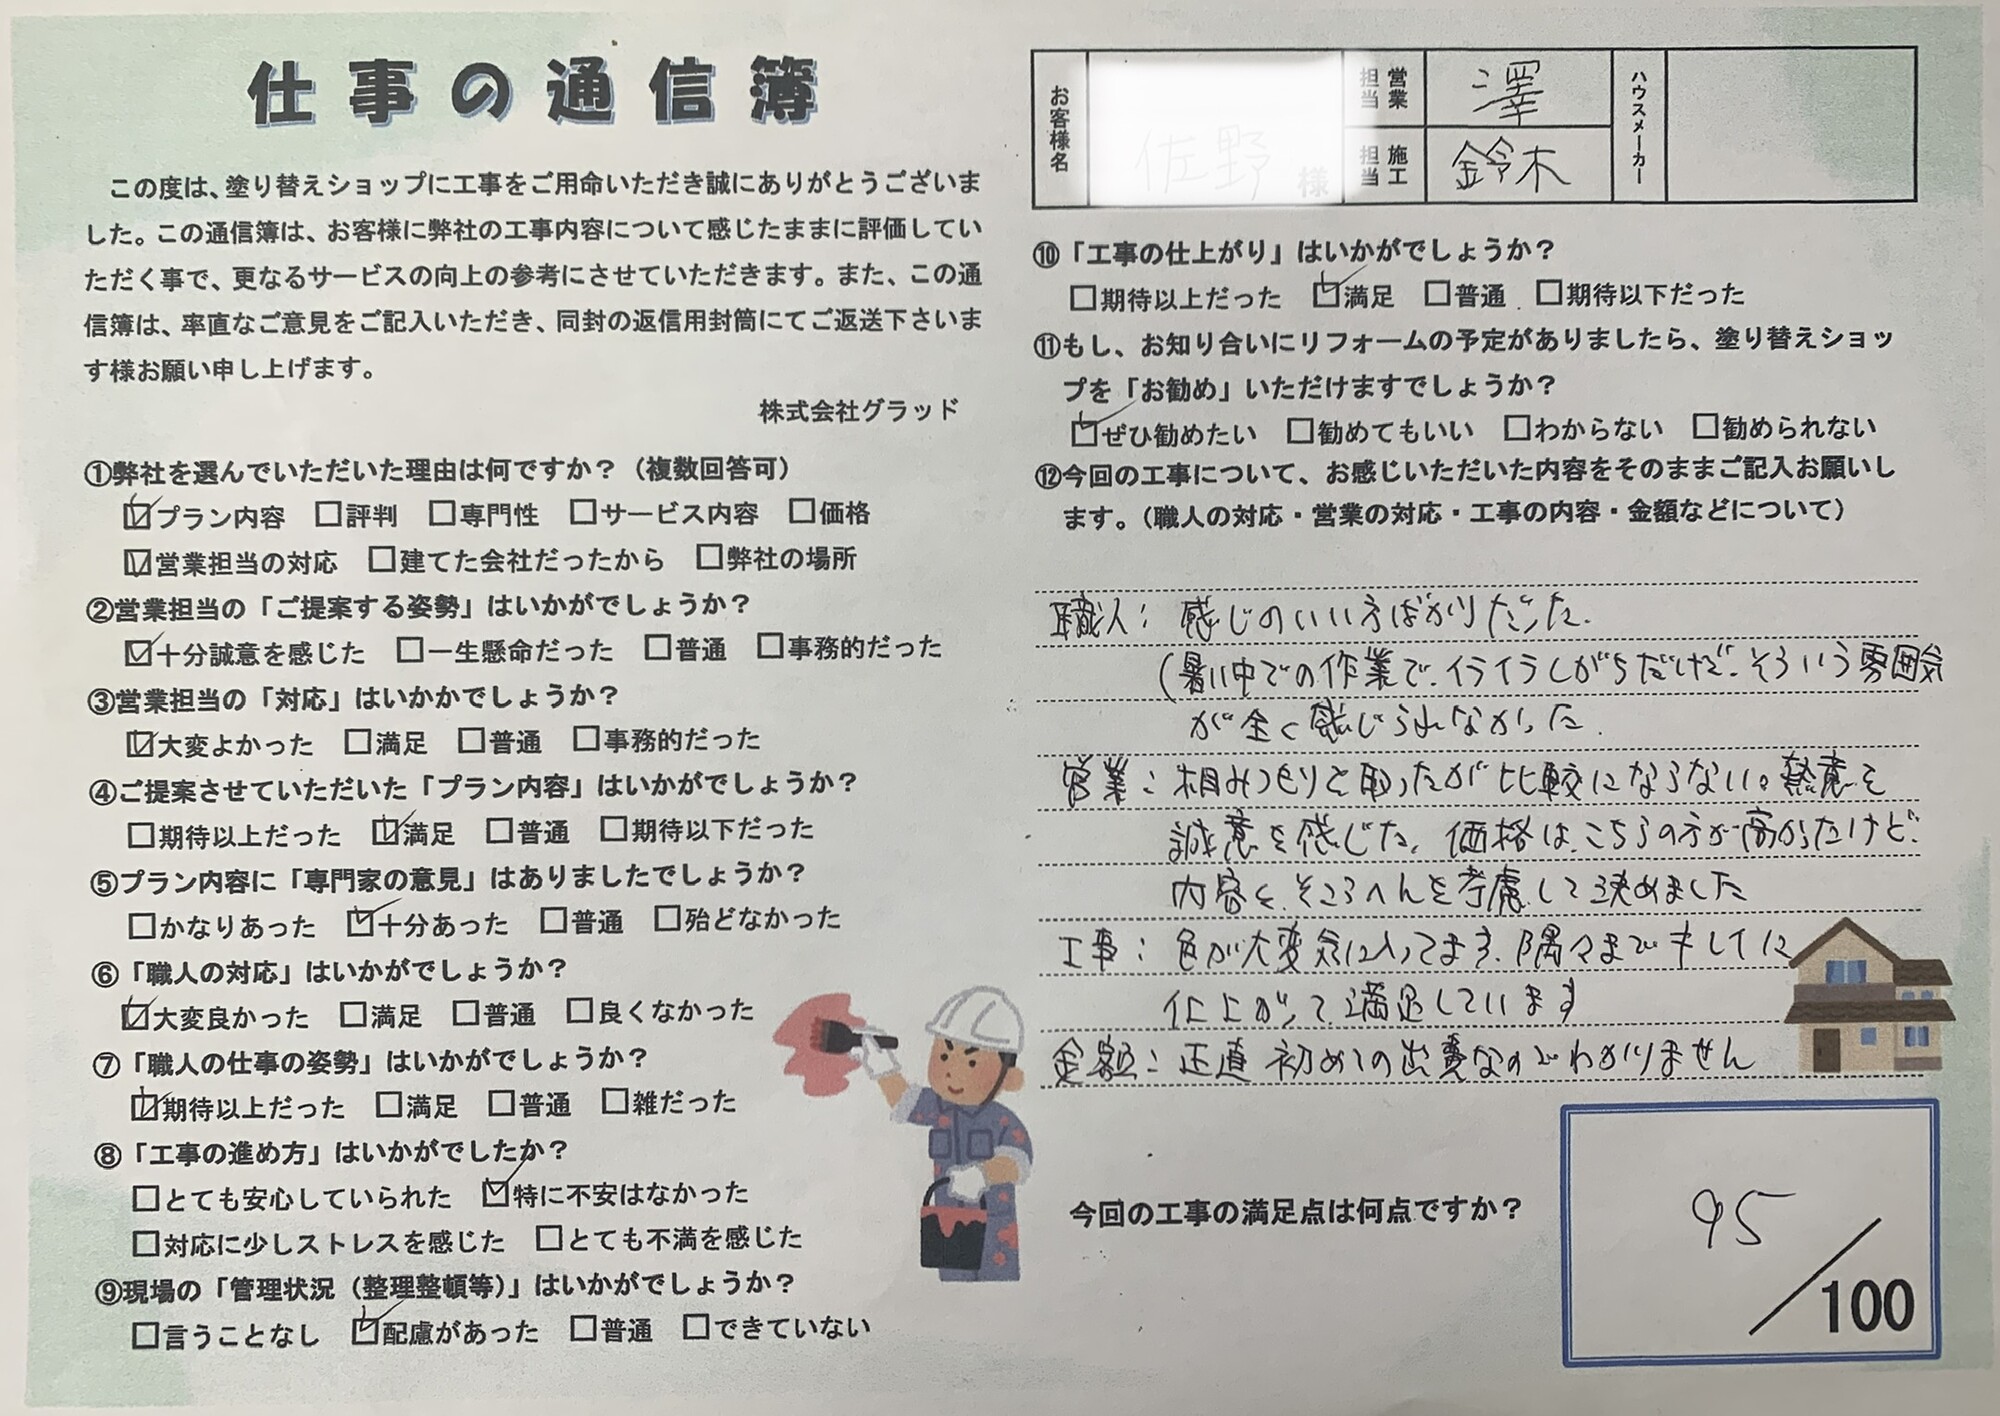 仕事の通信簿
この度は、塗り替えショップに工事をご用命いただき誠にありがとうございま
した。この通信簿は、お客様に弊社の工事内容について感じたままに評価してい
ただく事で、更なるサービスの向上の参考にさせていただきます。また、この通
信簿は、率直なご意見をご記入いただき、同封の返信用封筒にてご返送下さいま
す様お願い申し上げます。
株式会社グラッド
①弊社を選んでいただいた理由は何ですか？（複数回答可）
☑プラン内容 □評判 □専門性 □サービス内容 □価格
☑営業担当の対応 □建てた会社だったから □弊社の場所
②営業担当の「ご提案する姿勢」はいかがでしょうか？
☑十分誠意を感じた □一生懸命だった □普通 □事務的だった
③営業担当の「対応」はいかかでしょうか？
☑大変よかった □満足 □普通 □事務的だった
④ご提案させていただいた「プラン内容」はいかがでしょうか？
□期待以上だった ☑満足 □普通 □期待以下だった
⑤プラン内容に「専門家の意見」はありましたでしょうか？
□かなりあった ☑十分あった □普通 □殆どなかった
⑥「職人の対応」はいかがでしょうか？
☑大変良かった □満足 □普通 □良くなかった
⑦「職人の仕事の姿勢」はいかがでしょうか？
☑期待以上だった □満足 □普通 □雑だった
⑧「工事の進め方」はいかがでしたか？
□とても安心していられた ☑特に不安はなかった
□対応に少しストレスを感じた □とても不満を感じた
⑨現場の「管理状況（整理整頓等）」はいかがでしょうか？
□言うことなし ☑配慮があった □普通 □できていない
お客様名 佐野 様 営業担当 澤 ハウスメーカー
施工担当 鈴木
⑩「工事の仕上がり」はいかがでしょうか？
□期待以上だった ☑満足 □普通 □期待以下だった
⑪もし、お知り合いにリフォームの予定がありましたら、塗り替えショッ
プを「お勧め」いただけますでしょうか？
☑ぜひ勧めたい □勧めてもいい □わからない □勧められない
⑫今回の工事について、お感じいただいた内容をそのままご記入お願いし
ます。（職人の対応・営業の対応・工事の内容・金額などについて）
職人： 感じのいい方ばかりだった.
（暑い中での作業で、イライラしがちだけど、そういう雰囲気
が全く感じられなかった.
営業： 相みつもりを取ったが比較にならない。熱意を
誠意を感じた。価格は、こちらの方が高かったけど、
内容と、そこらへんを考慮して決めました
工事： 色が大変気に入ってます。隅々までキレイに
仕上がって満足しています
金額： 正直 初めての出費なのでわかりません
今回の工事の満足点は何点ですか？
95/100